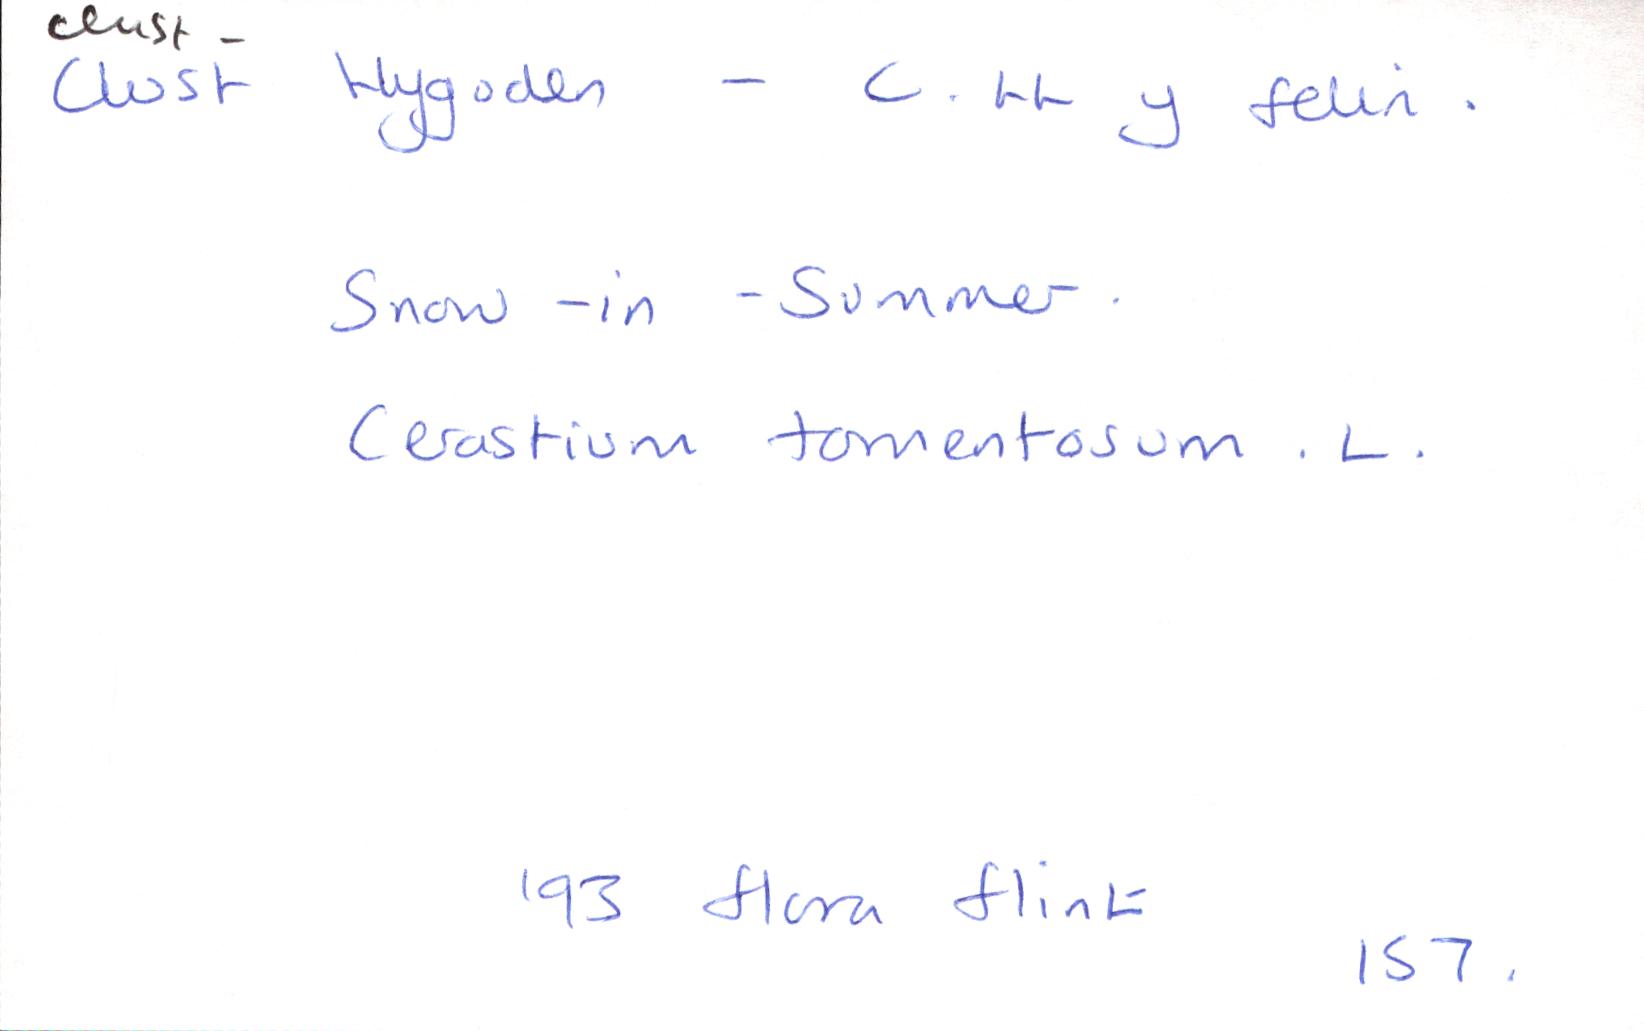 clust -
Clust llygoden - C. ll y felin.
Snow-in-Summer.
Cerastium tomentosum. L.
'93 flora flint
157.